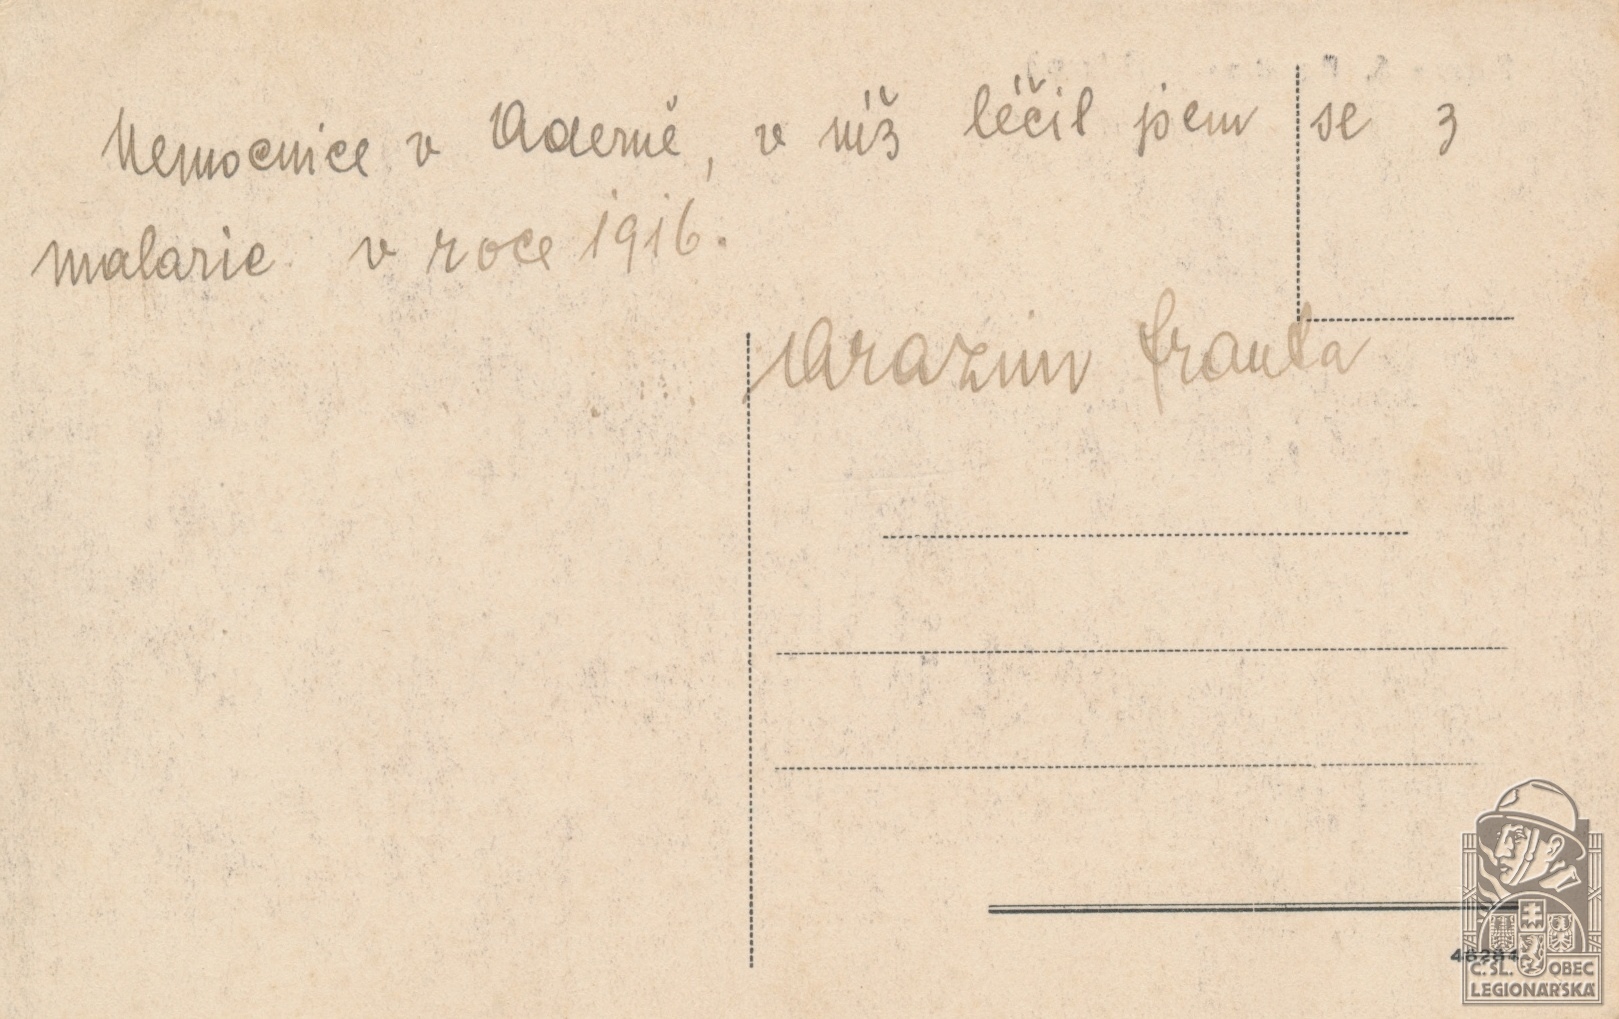 Nemocnice v Oderně, v níž léčil jsem se z
malarie v roce 1916.
Vrazim Franta
46284
Č. SL. OBEC
LEGIONÁŘSKÁ